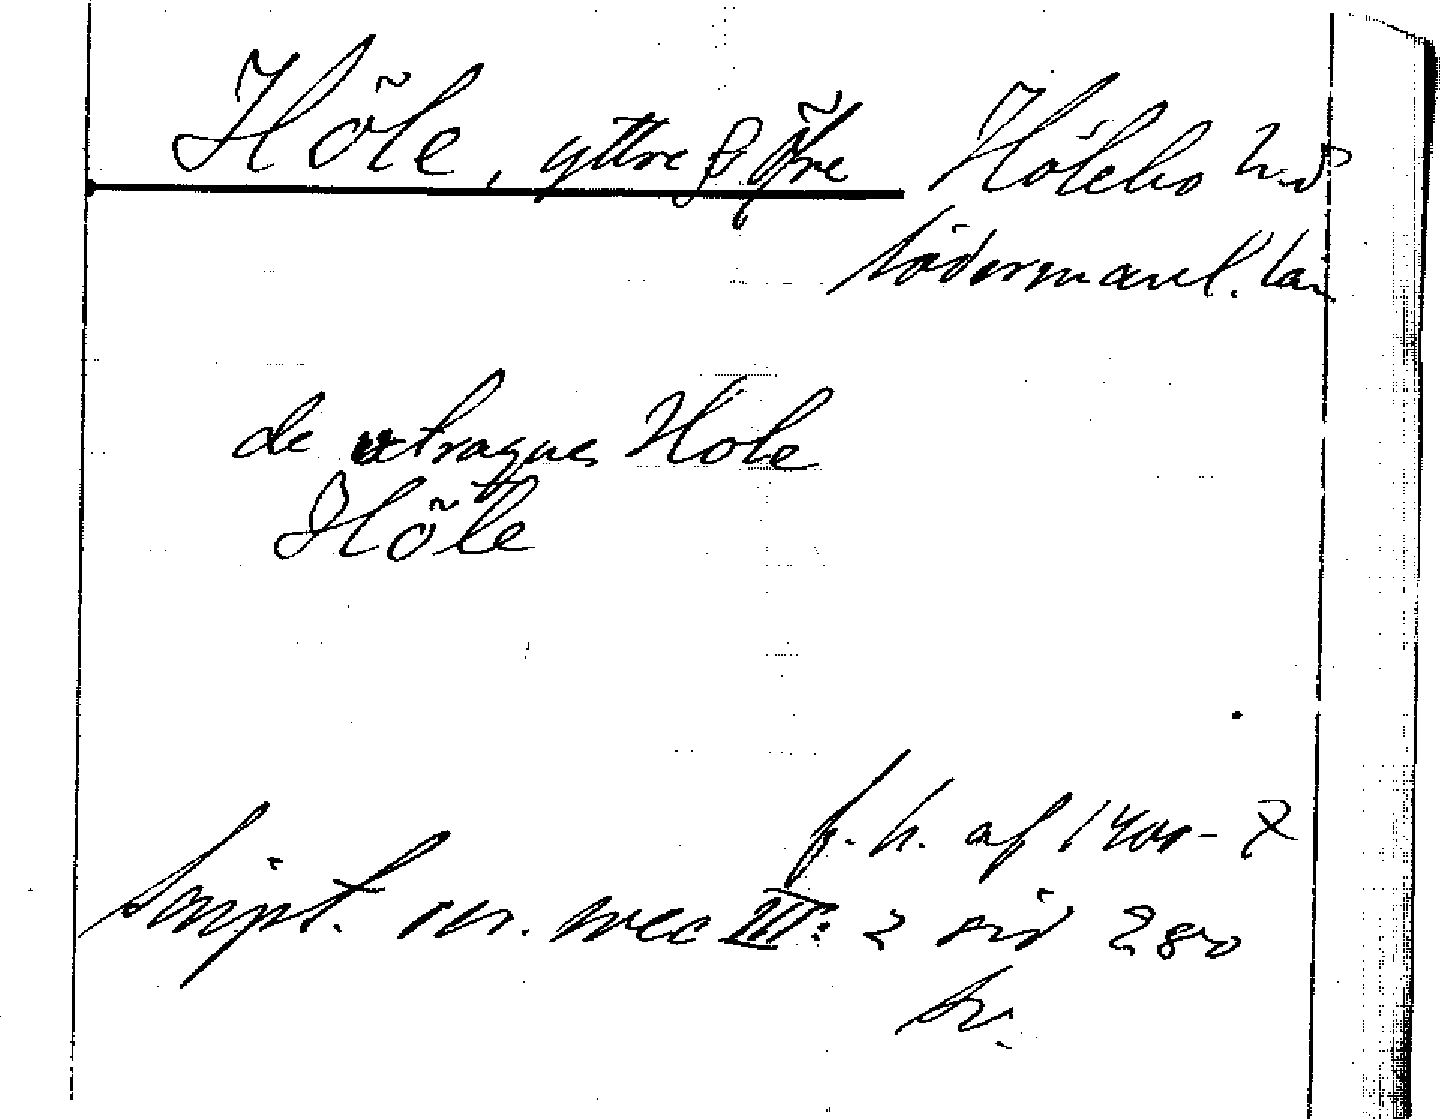 Hõle, yttre & õfre Hölebo hd
Södermanl. län
de utraque Hole
Hõle
f. h. af 1400-t
Script. rer. svec III: 2 sid 280